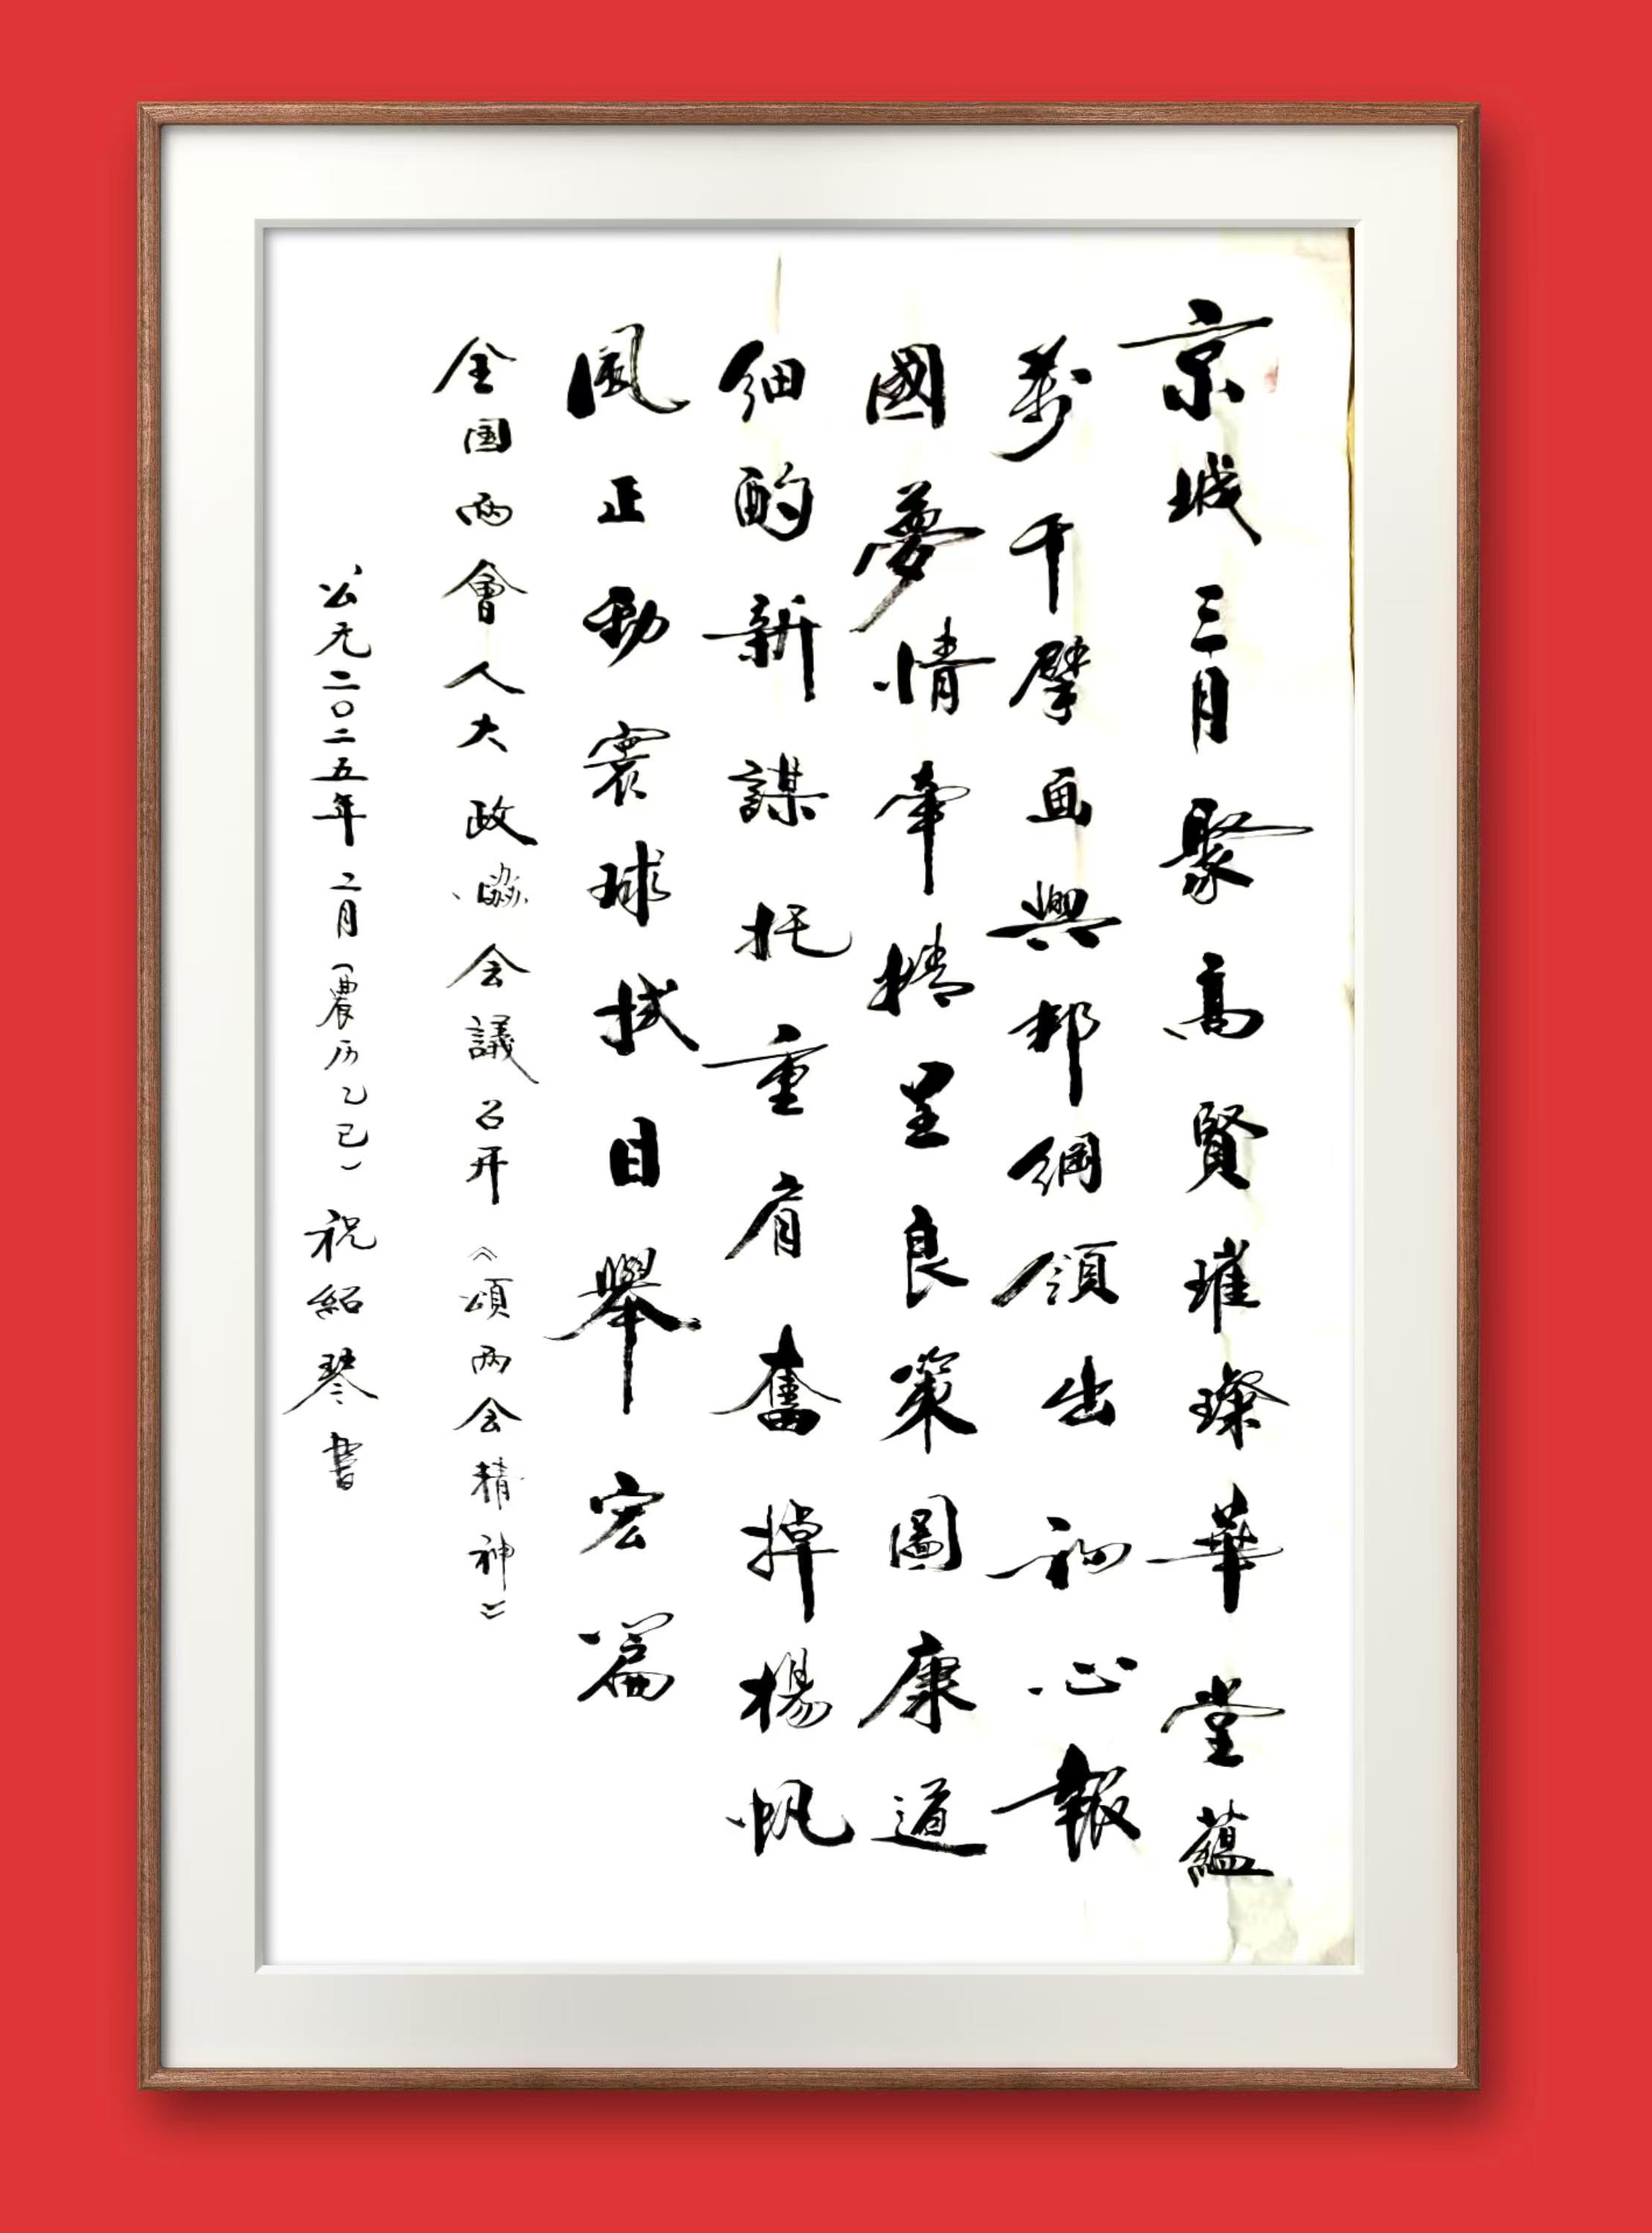 京城三月聚高賢璀璨華堂蘊
萬千擘画興邦綱領出初心報
國夢情牽精呈良策圖康道
細酌新謀托重肩奮掉楊帆
風正勁寰球拭目舉宏篇
全国两會人大政協会議召开《頌两会精神》
公元二〇二五年二月(農历乙巳)祝紹琴書